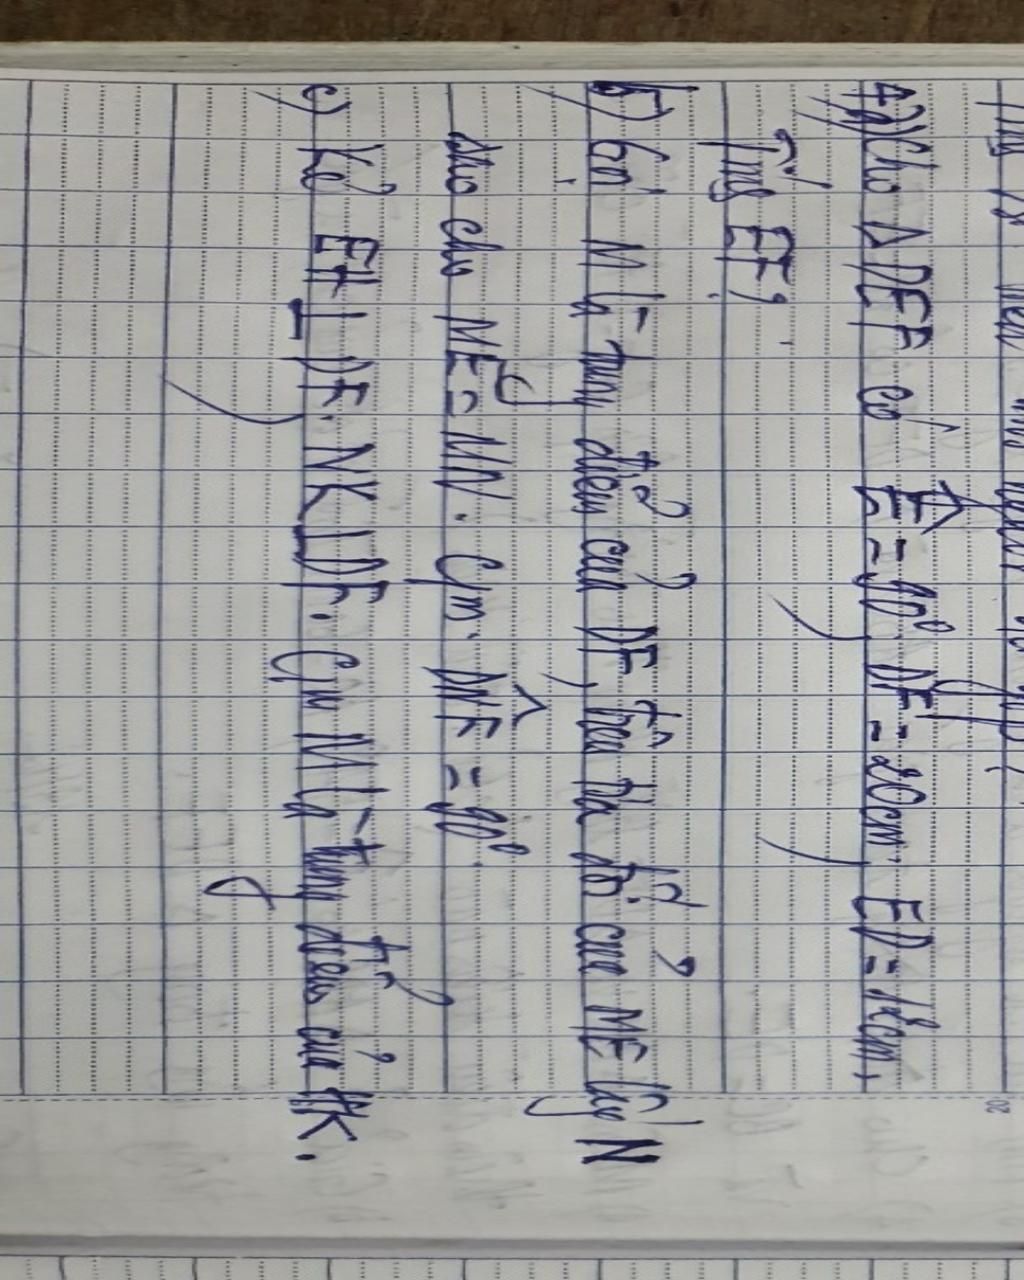 4) a) Cho Δ DEF có Ê = 90°, DF = 20cm. ED = 18cm,
Tính EF?
b) Gọi M là trung điểm của DF, trên tia đối của ME lấy N
sao cho ME = MN. Cm. DNF = 90°.
c) Kẻ EH ⊥ DF. NK ⊥ DF. Cm M là trung điểm của HK.
20